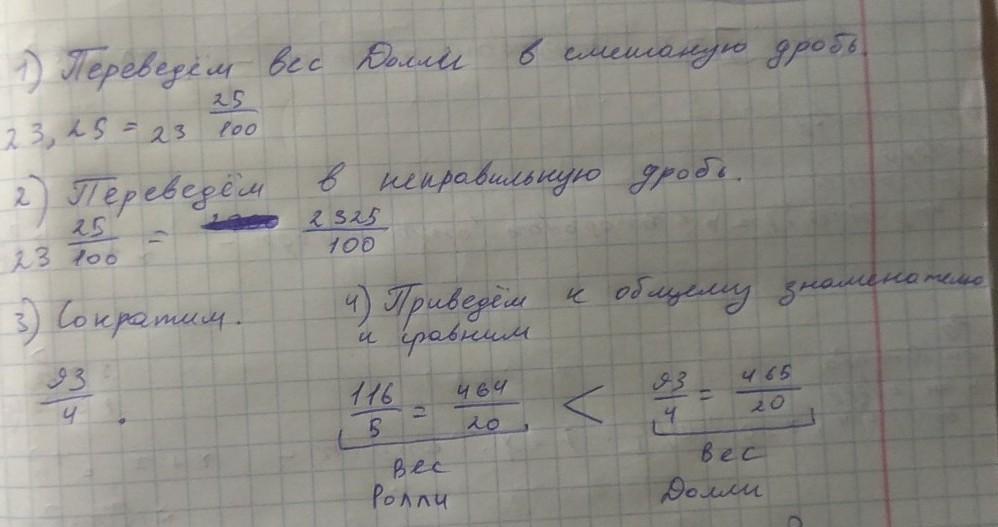 1) Переведём вес Долли в смешаную дробь.
23,25 = 23 25/100
2) Переведём в неправильную дробь.
23 25/100 = 2325/100
3) Сократим.
93/4.
4) Приведём к общему знаменателю
и сравним
116/5 = 464/20 < 93/4 = 465/20
Вес
Ролли
Вес
Долли